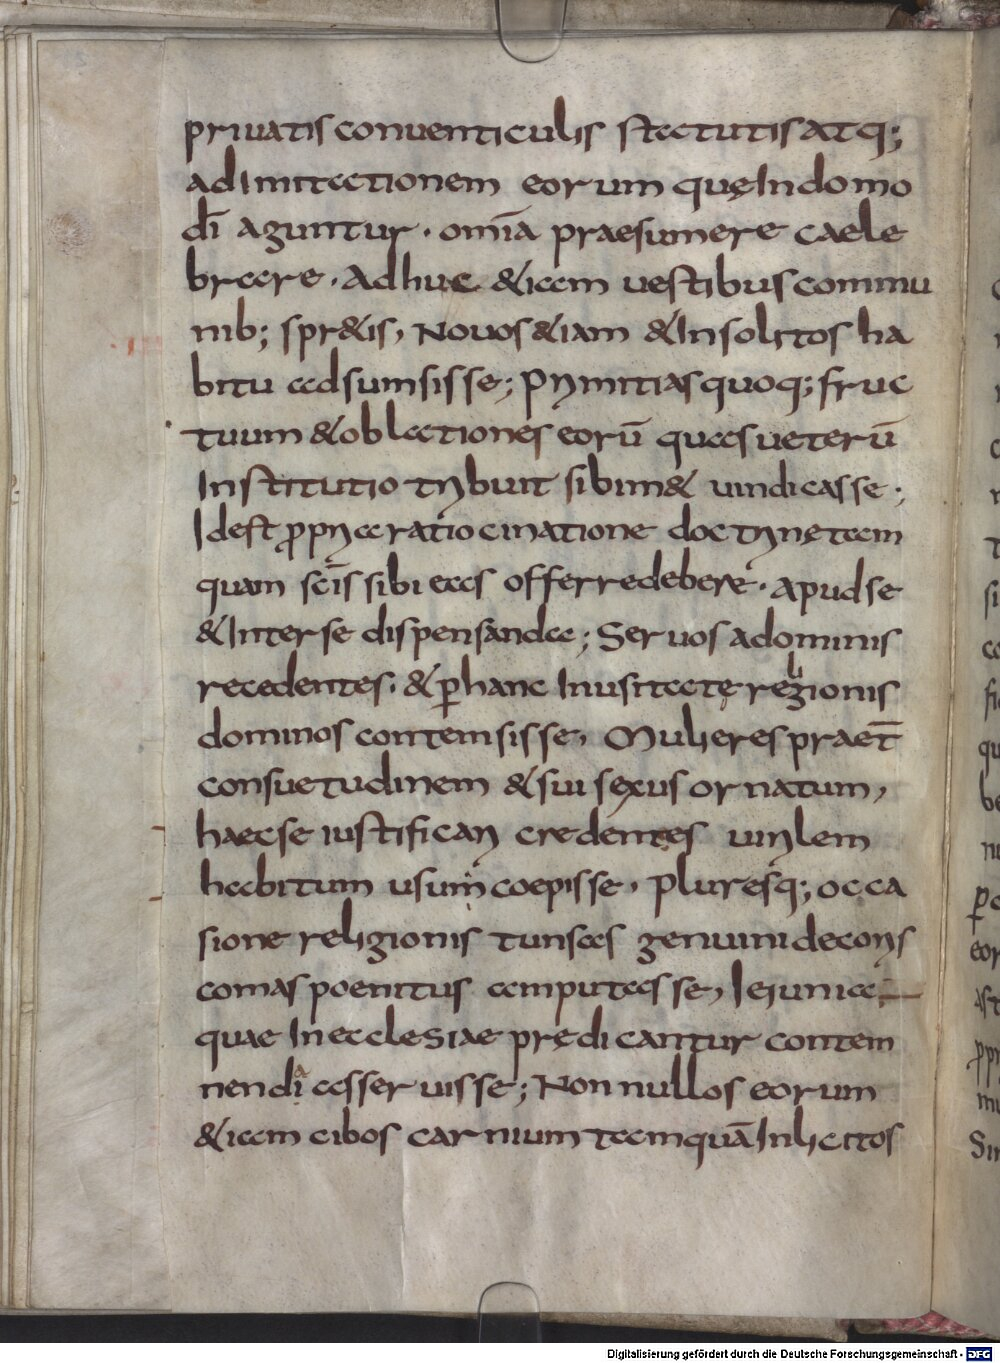 priuatis conuenticulis statutis atq;
ad Imitationem eorum quę In domo
dī aguntur · omīa praesumere caele
brare · Adhuc &iam uestibus commu
nib; spr&is, Nouos &iam & Insolitos ha
bitu adsumsisse; Primitias quoq; fruc
tuum & oblationes eorū quas ueterū
Institutio tribuit sibim& uindicasse;
Idest ꝓpria ratiocinatione doctrinę tam
quam scīs sibi eas offerre debere · apud se
& Inter se dispensandae; Seruos a dominis
recedentes · & ꝑ hanc Inusitatę religionis
dominos contemsisse, Mulieres praet̄
consuetudinem & sui sexus ornatum,
haec se iustificari credentes uirilem
habitum usum coepisse, Pluresq; occa
sione religionis tunsas genuini decoris
comas poenitus amputasse, Ieiunia
quae In ecclesiae prędicantur contem
nendia asseruisse; Non nullos eorum
&iam cibos carnium tamquā Inlicitos
Digitalisierung gefördert durch die Deutsche Forschungsgemeinschaft - DFG